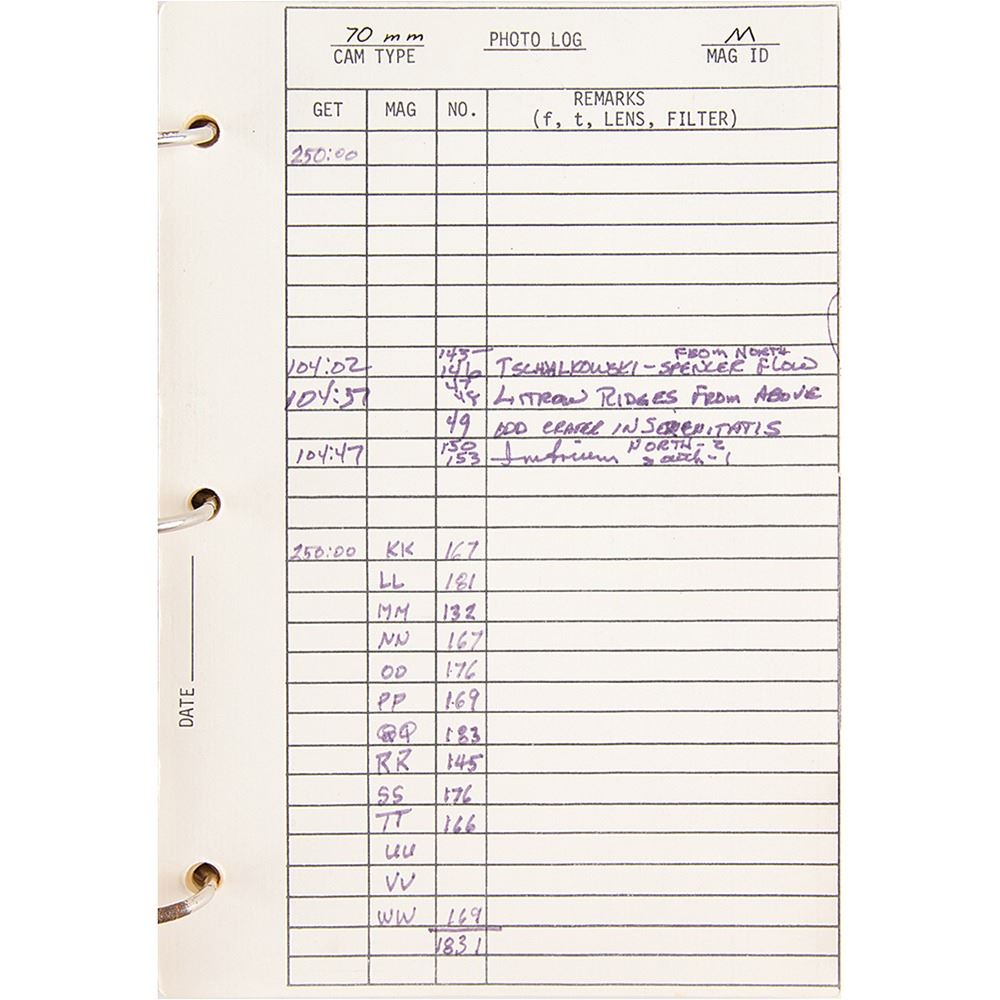 70 mm M
CAM TYPE PHOTO LOG MAG ID
GET MAG NO. REMARKS
(f, t, LENS, FILTER)
250:00
145- FROM NORTH
104:02 146 TSCHALKOWSKI-SPENCER FLOW
47
104:37 48 LITTROW RIDGES FROM ABOVE
49 ODD CRATER IN SERENITATIS
150 NORTH-2
104:47 153 Imbrium South-1
250:00 KK 167
LL 181
MM 132
NN 167
OO 176
PP 169
QQ 183
RR 145
SS 176
TT 166
UU
VV
WW 169
1831
DATE